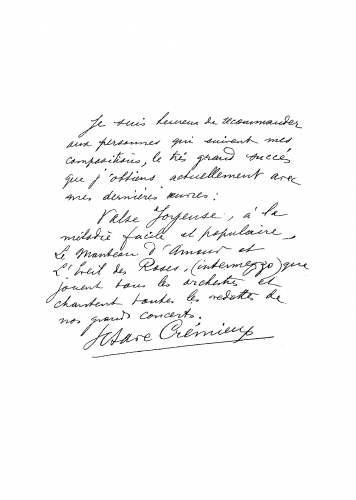 Je suis heureux de recommander
aux personnes qui suivent mes
compositions, le très grand succès
que j'obtiens actuellement avec
mes dernières œuvres :
Valse Joyeuse, à la
mélodie facile et populaire,
Le Manteau d'Amour et
L'Éveil des Roses, (intermezzo) que
jouent tous les orchestres et
chantent toutes les vedettes de
nos grands concerts.
Octave Crémieux